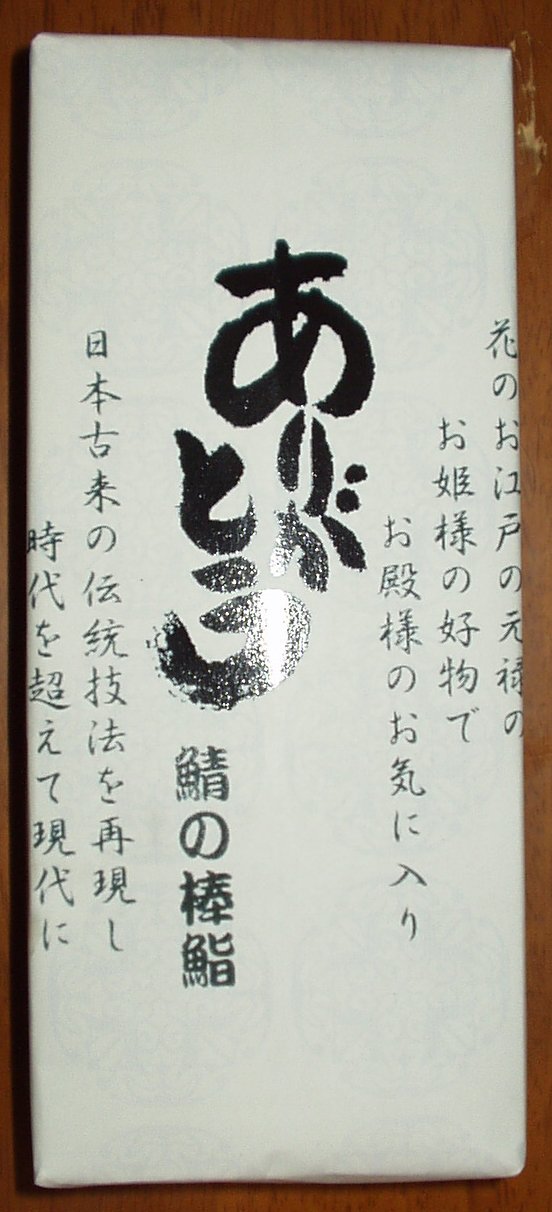 花のお江戸の元禄の
お姫様の好物で
お殿様のお気に入り
ありが
とう
鯖の棒鮨
日本古来の伝統技法を再現し
時代を超えて現代に